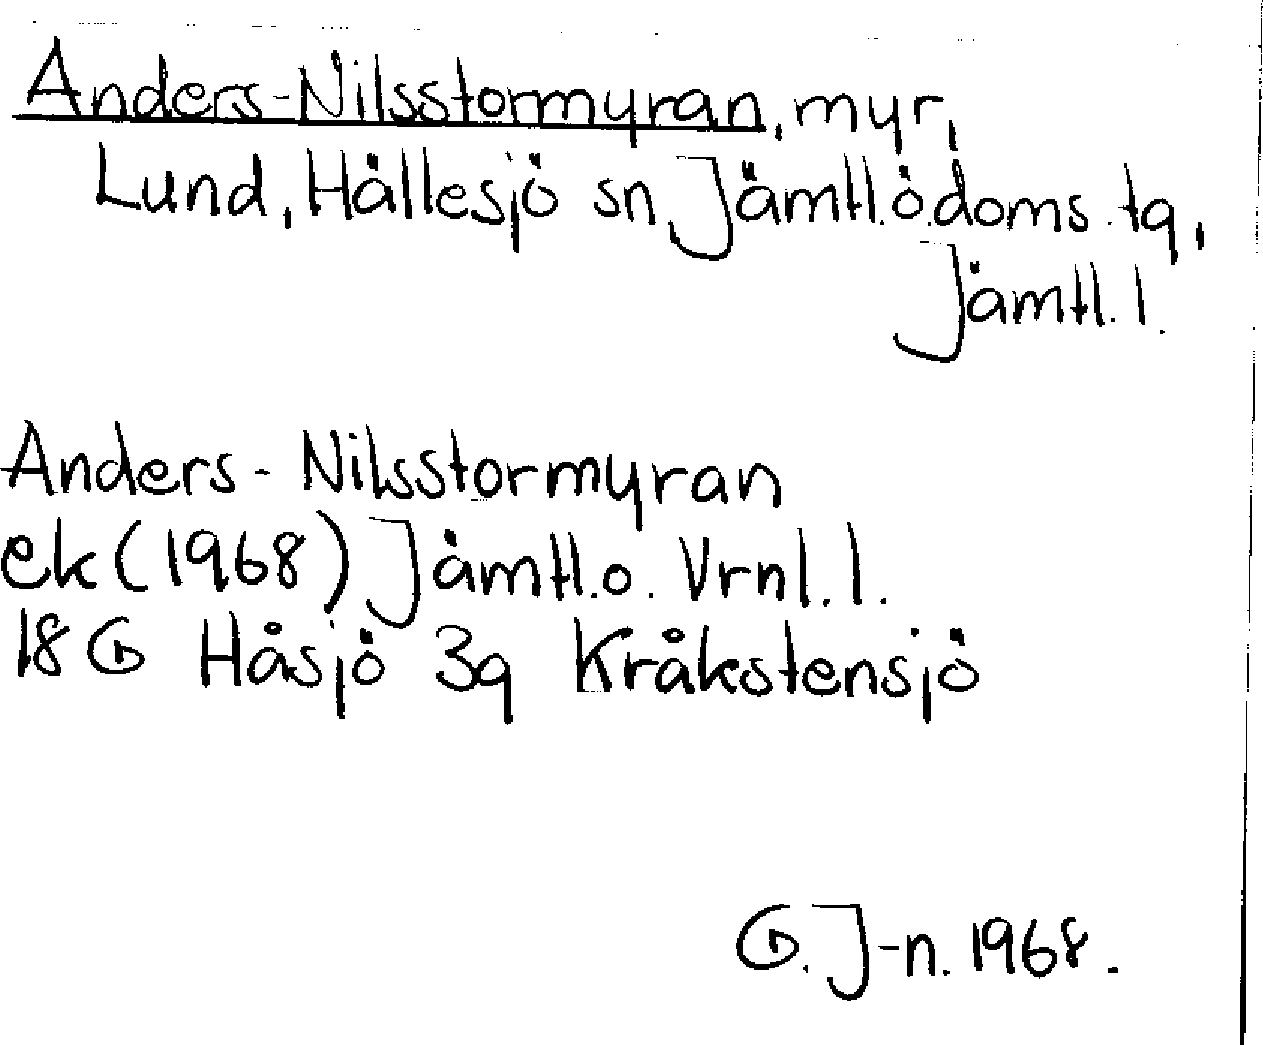 Anders-Nilsstormyran, myr,
Lund, Hällesjö sn, Jämtl.ö.doms.tg,
Jämtl. l.
Anders-Nilsstormyran
ek (1968) Jämtl.o. Vrnl. l.
18 G Håsjö 3g Kråkstensjö
G. J-n. 1968.